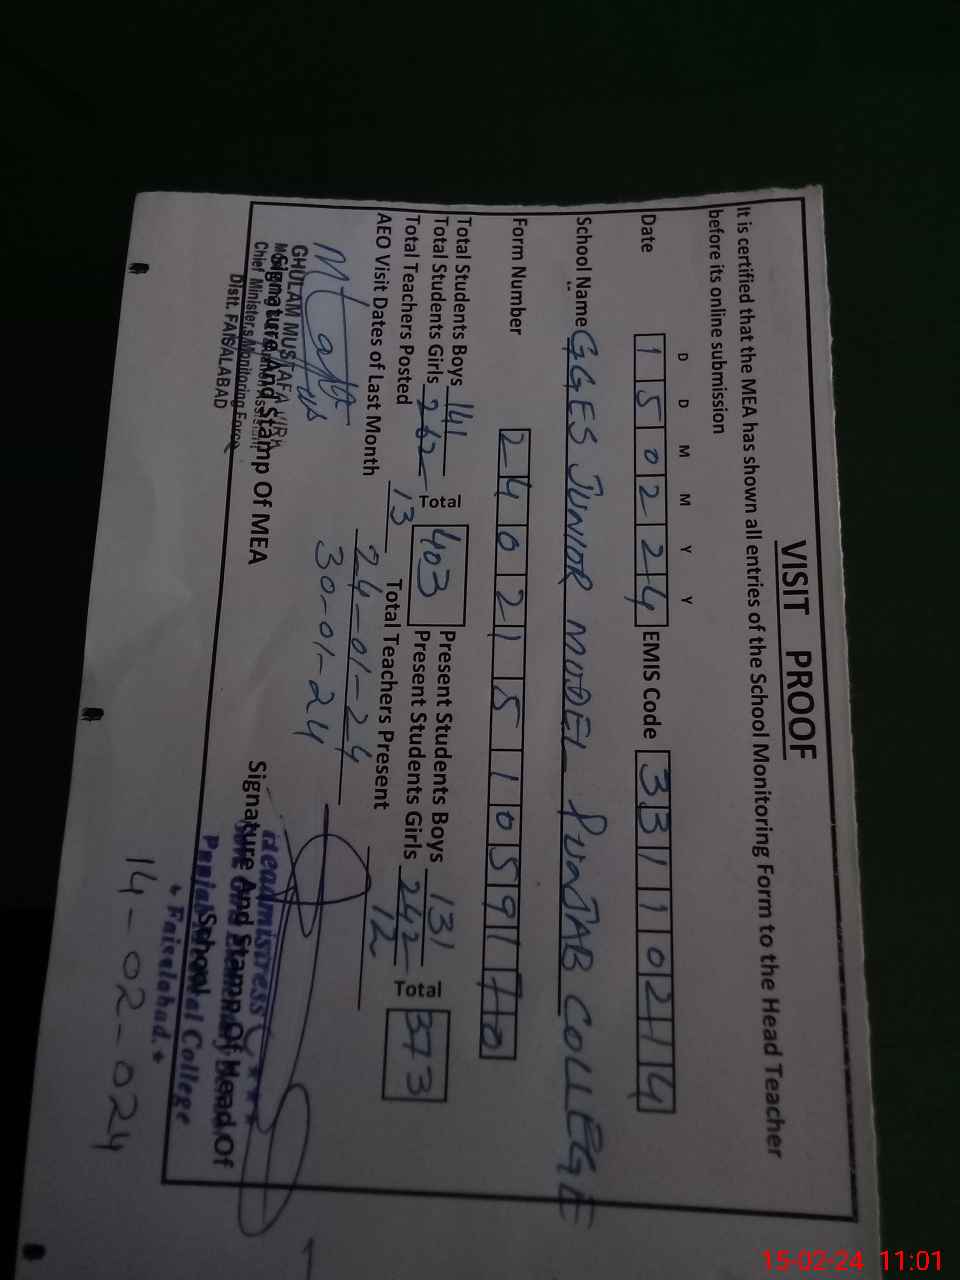 VISIT PROOF
It is certified that the MEA has shown all entries of the School Monitoring Form to the Head Teacher
before its online submission
D D M M Y Y
Date 1 5 0 2 2 4 EMIS Code 3 3 1 1 0 2 1 4
School Name GGES JUNIOR MODEL PUNJAB COLLEGE
Form Number 2 4 0 2 1 5 1 0 5 9 1 7 0
Total Students Boys 141 Total 403 Present Students Boys 131 Total 373
Total Students Girls 262 Present Students Girls 242
Total Teachers Posted 13 Total Teachers Present 12
AEO Visit Dates of Last Month 24-01-24
30-01-24
GHULAM MUSTAFA VIRK
Signature And Stamp Of MEA
Chief Minister,s Monitoring Force
Distt. FAISALABAD
Signature And Stamp Of Head Of
School
Headmistress
College
* Faisalabad. *
14-02-024
15-02-24 11:01